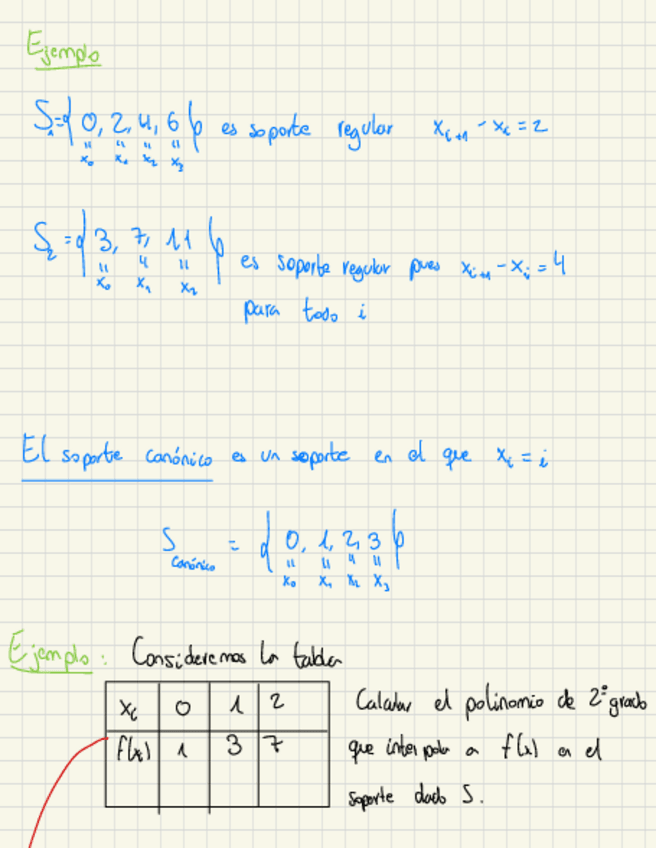 Ejemplo
S₁={0, 2, 4, 6} es soporte regular xᵢ₊₁ - xᵢ = 2
" " " "
x₀ x₁ x₂ x₃
S₂ = {3, 7, 11} es soporte regular pues xᵢ₊₁ - xᵢ = 4
" " "
x₀ x₁ x₂
para todo i
El soporte canónico es un soporte en el que xᵢ = i
S canónico = {0, 1, 2, 3}
" " " "
x₀ x₁ x₂ x₃
Ejemplo: Consideremos la tabla
xᵢ 0 1 2
f(xᵢ) 1 3 7
Calcular el polinomio de 2º grado
que interpola a f(x) en el
soporte dado S.